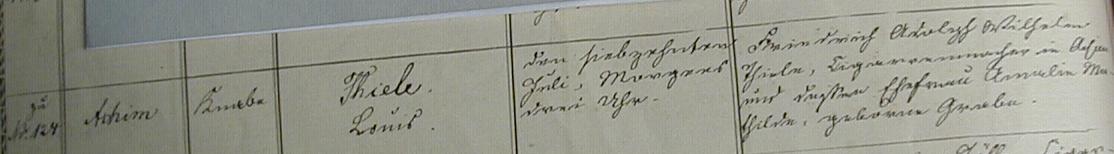 zu
No. 124
Achim
Knabe
Thiele.
Louis.
den siebzehnten
Juli, Morgens
drei Uhr.
Friedrich Adolph Wilhelm
Thiele, Cigarrenmacher in Achim
und dessen Ehefrau Amalie Ma-
thilde, geborne Grabe.